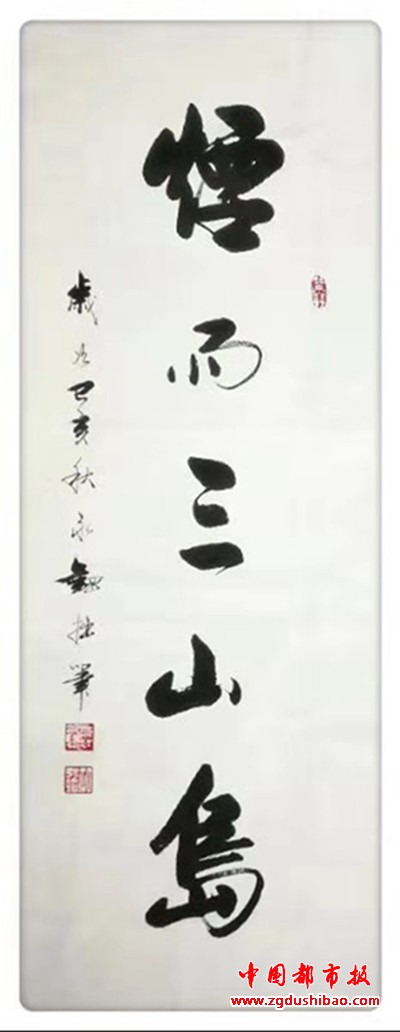 煙雨三山島
歲次己亥秋永拙筆
中国都市报
www.zgdushibao.com